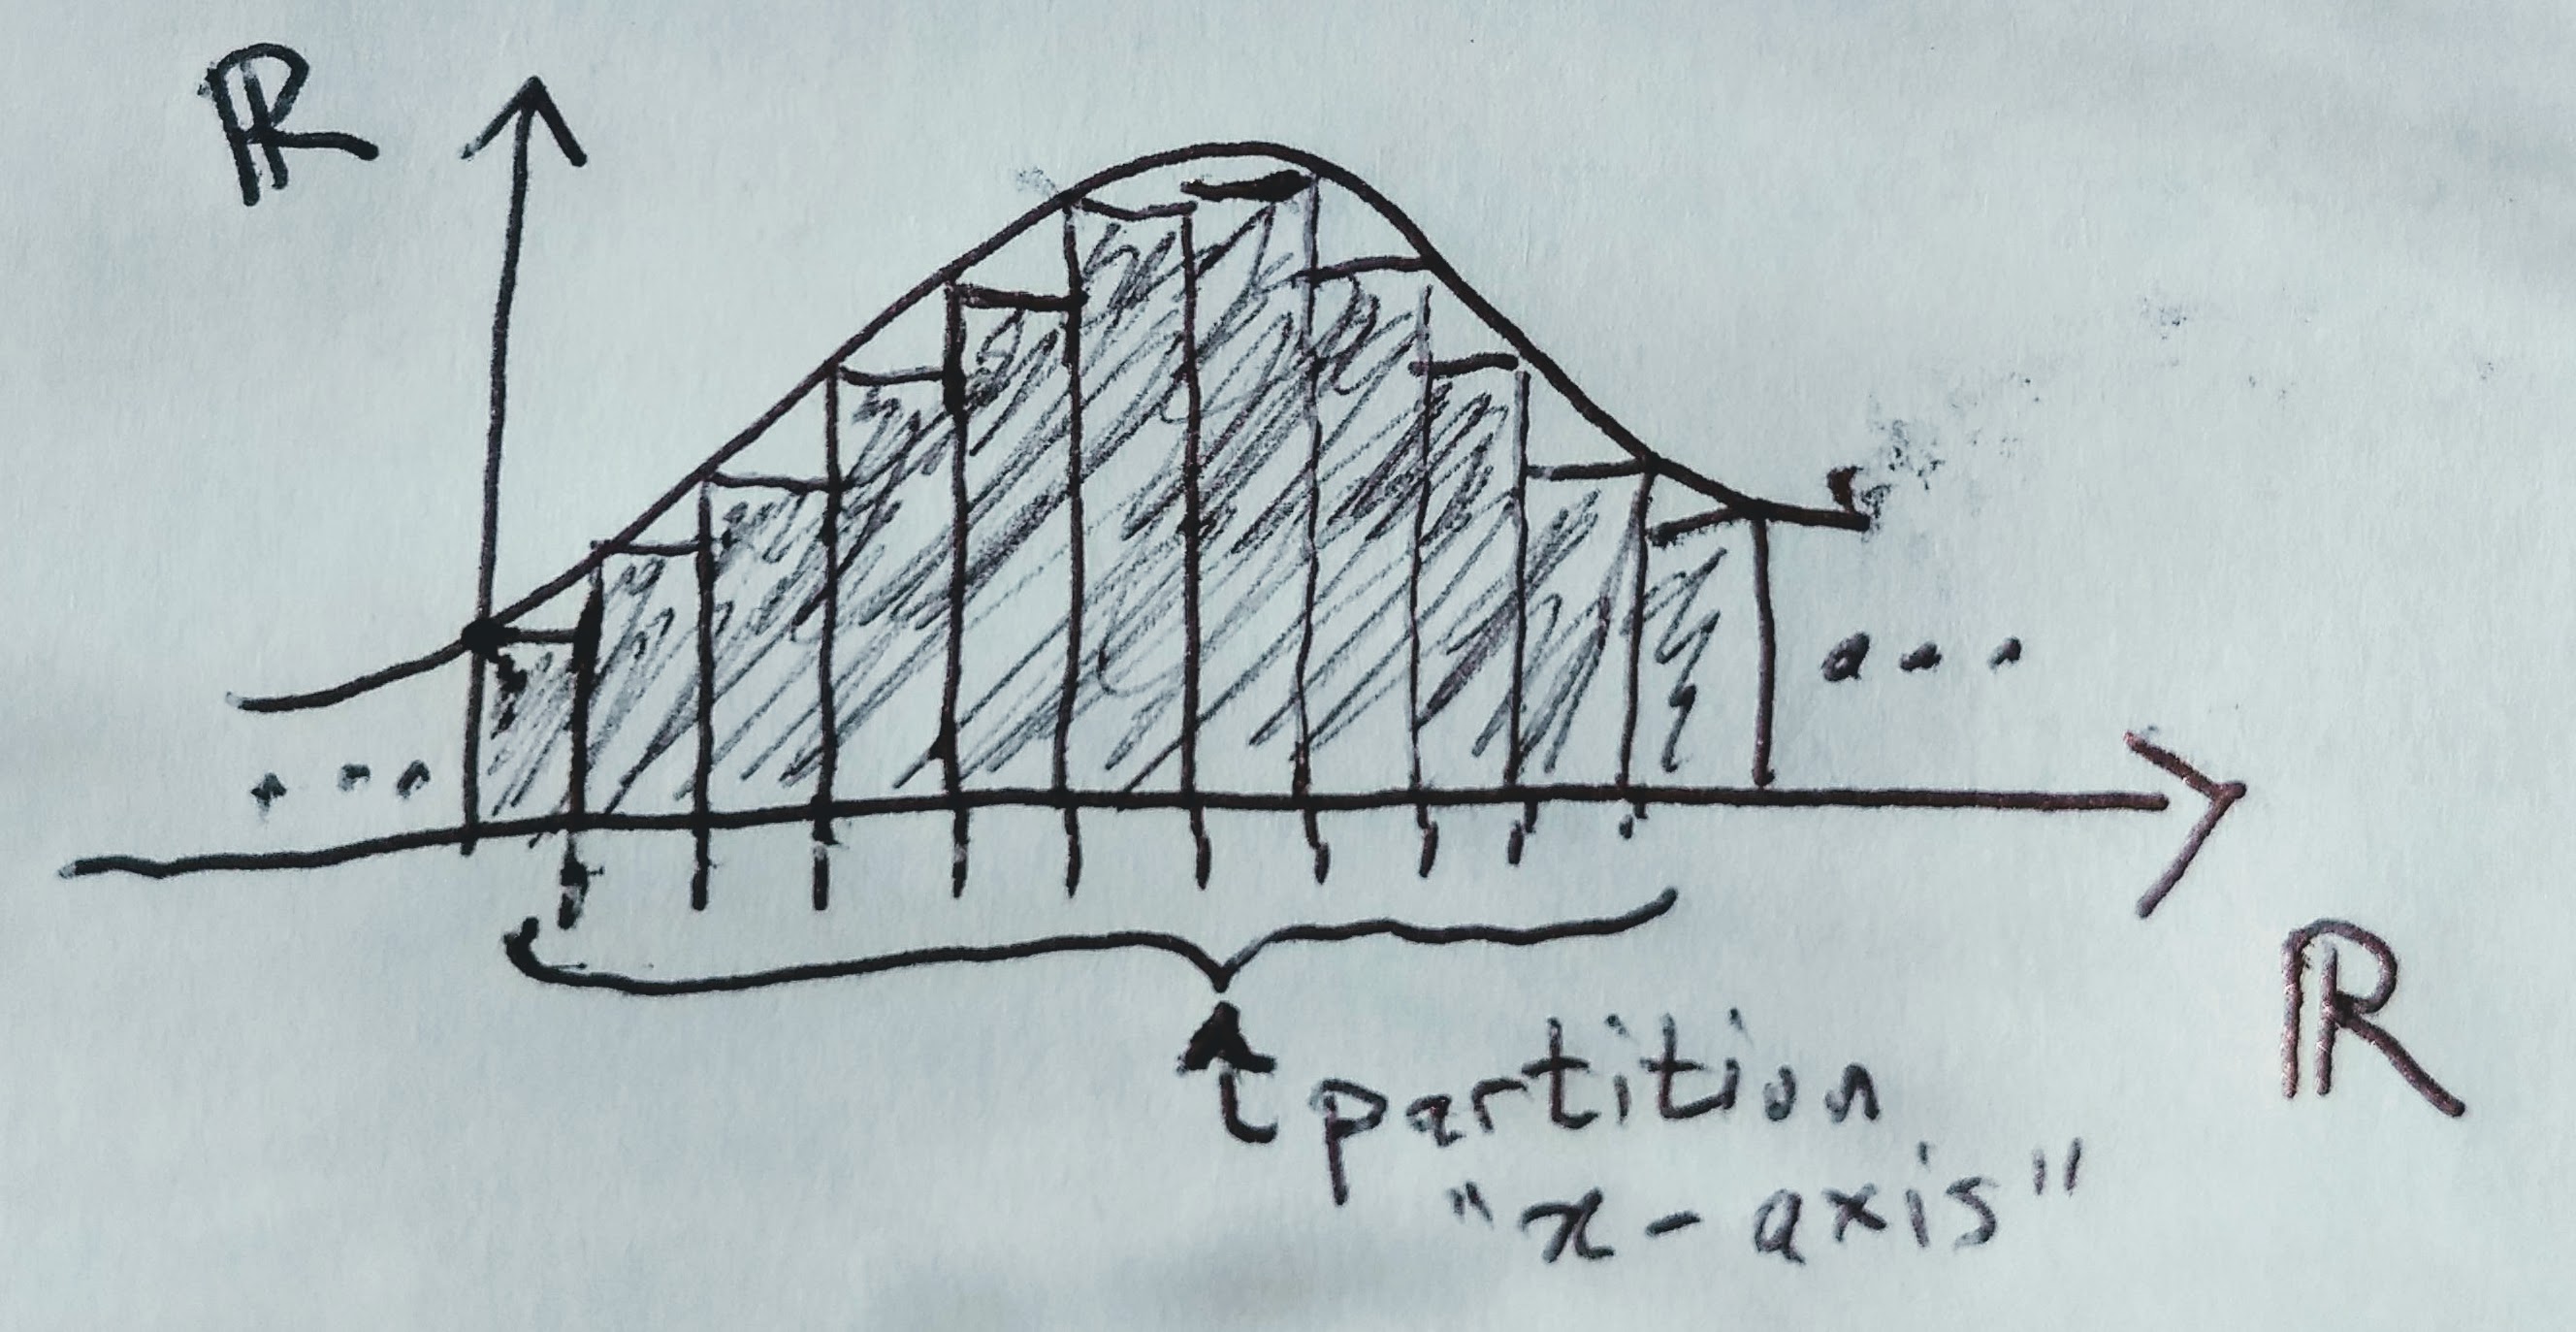 ℝ
...
...
ℝ
partition
"x-axis"